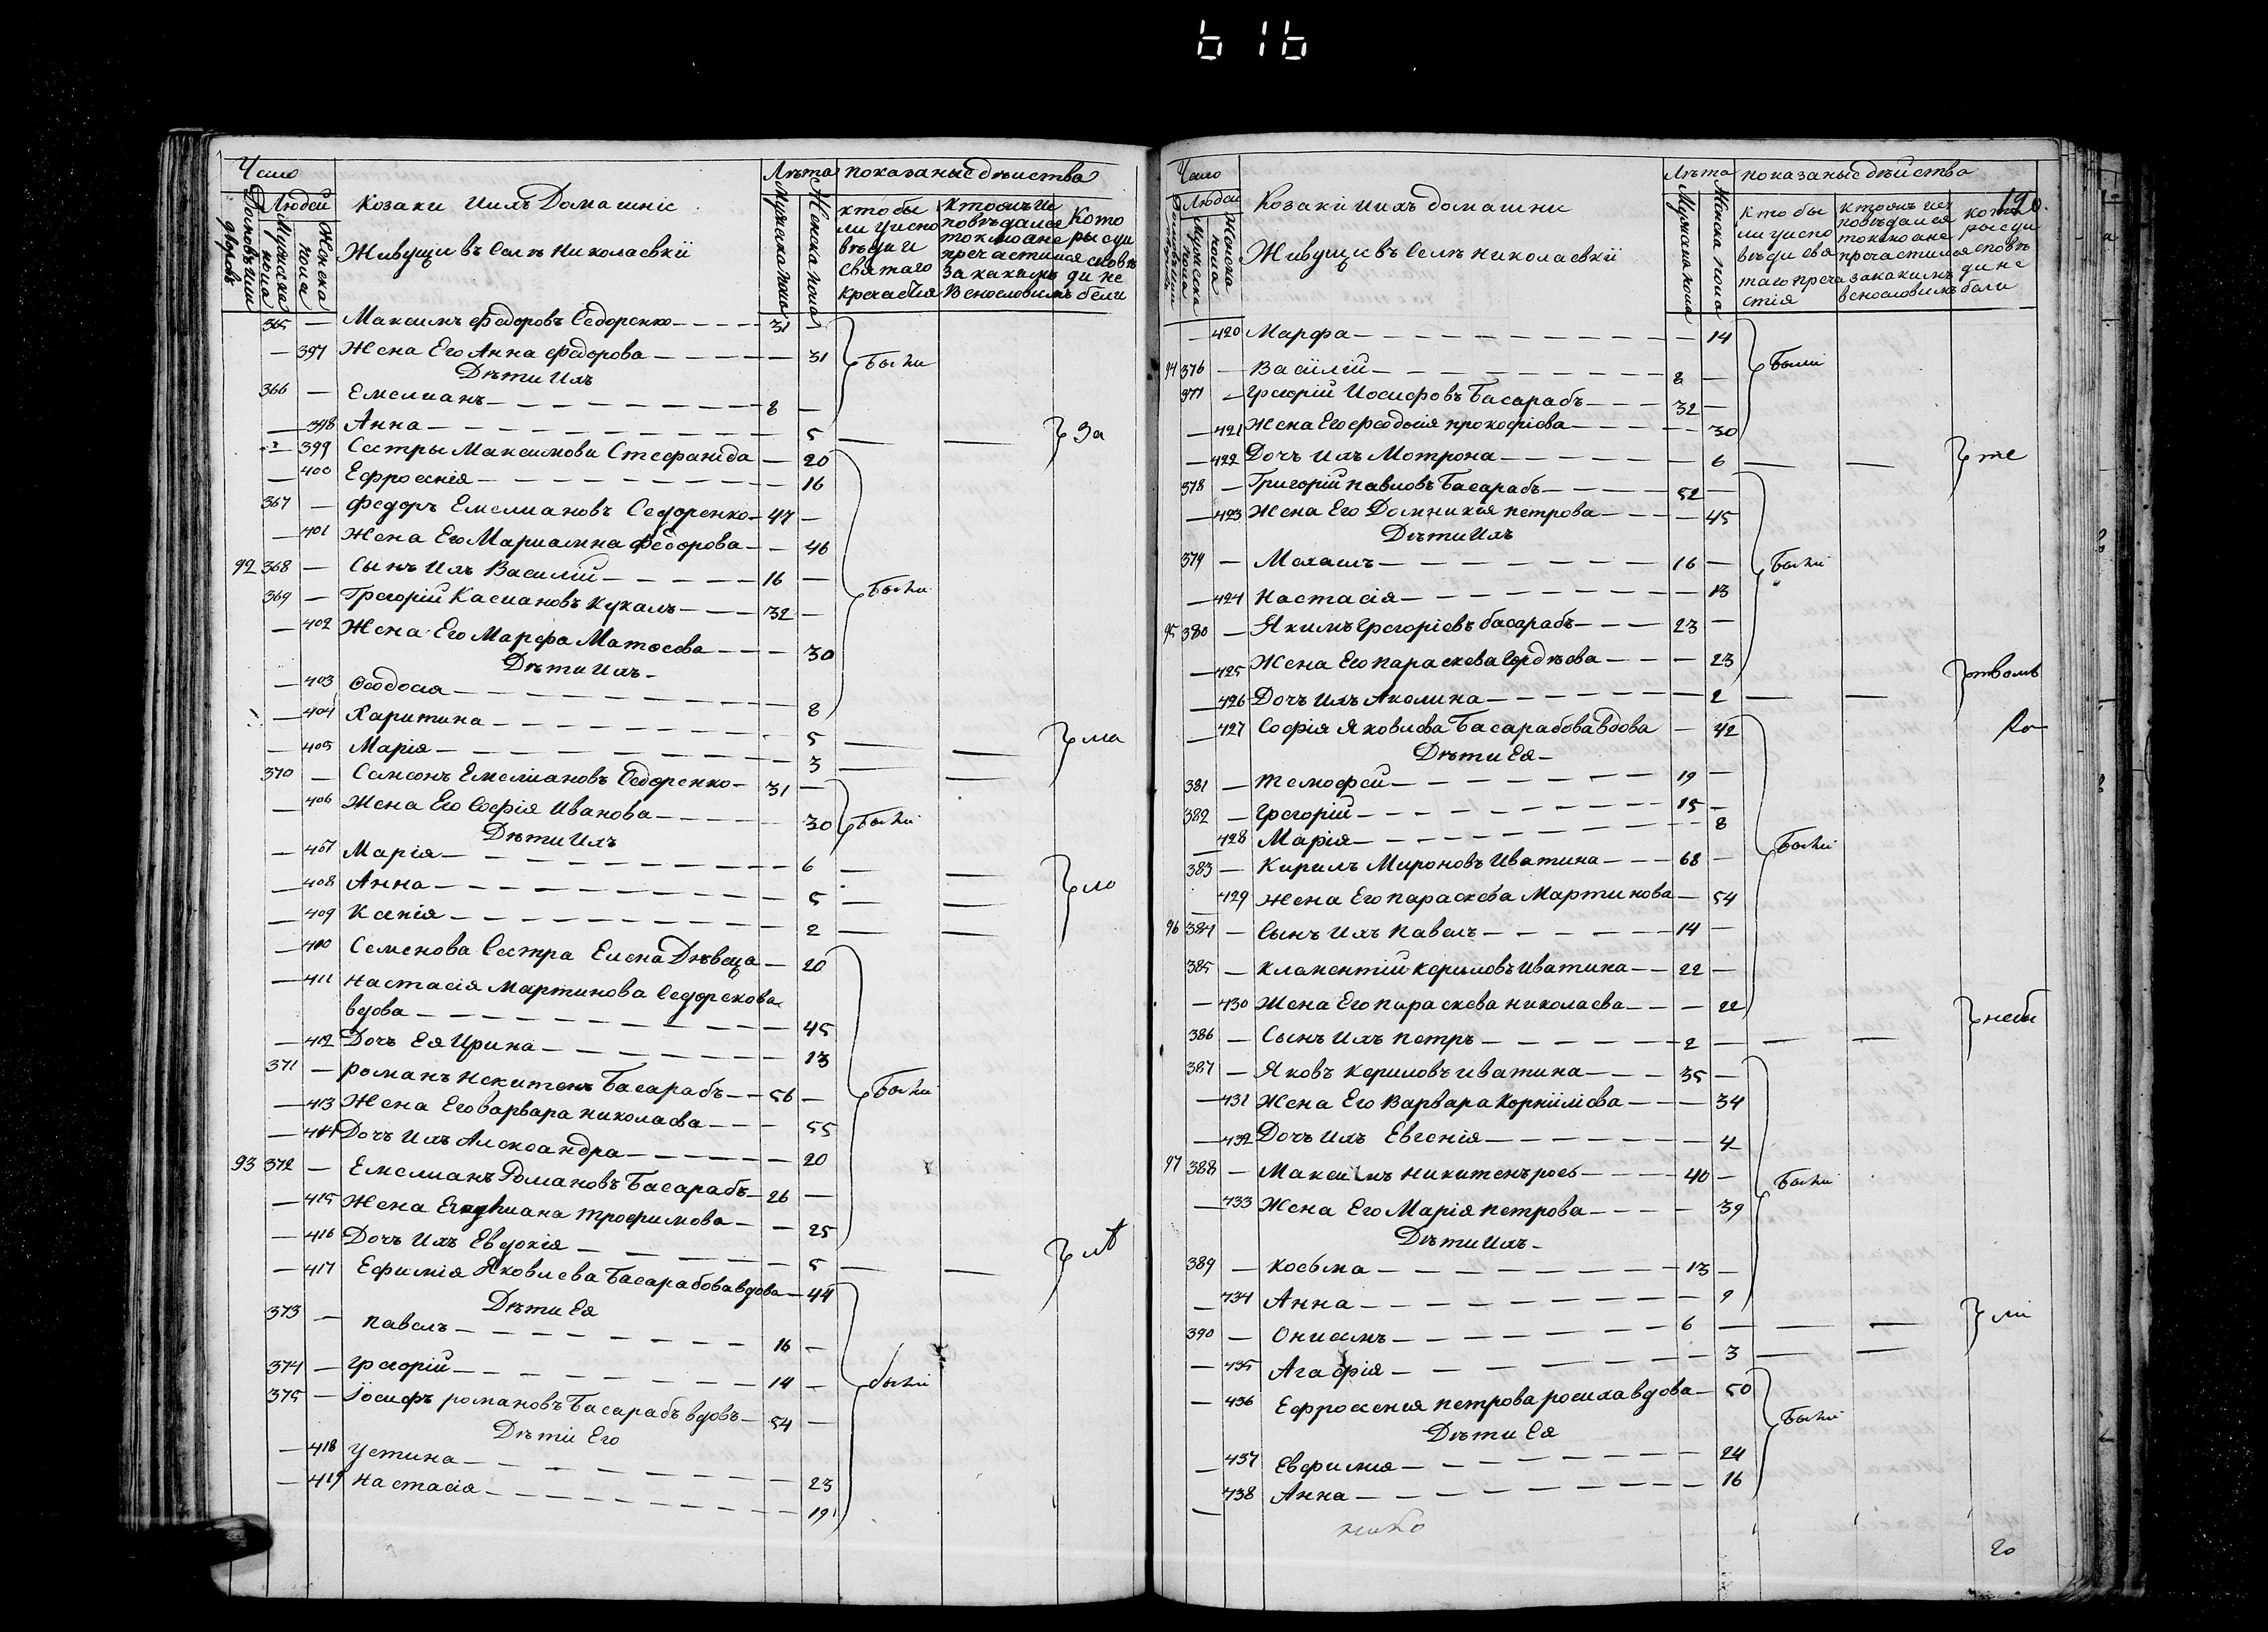 616
Число
Лѣта показаные дѣиства
Домовъ или дворовъ
Людей
Мужеска пола
Женска пола
Козаки и ихъ Домашніе
Живущи въ Селѣ Николаевкй
Мужеска пола
Женска пола
кто бы
ли у испо
вѣди и
святаго
кто изъ и
повѣдался
токмо а не
причастился
за какимъ
Кото
ры еи
365 — Максимъ Федоровъ Седоренко 31
— 397 Жена Его Анна Федорова — 31 Были
Дѣти ихъ
366 — Емелианъ 8 —
— 398 Анна 5 — — За
— 399 Сестры Максимови Стефанида — 20
— 400 Ефросенія 16
367 — Федоръ Емелиановъ Седоренко 47 —
— 401 Жена Его Мариамна Федорова — 46
92 368 — Сынъ Ихъ Василій 16 — Были
369 — Грегорій Касиановъ Кухаль 32 —
— 402 Жена Его Марфа Матоеева — 30
Дѣти Ихъ
— 403 Феодосия 8
— 404 Харитина 5 — — ма
— 405 Марія 3 — —
370 — Самсонъ Емелиановъ Седоренко 31 —
— 406 Жена Его Софія Иванова 30 Были
Дѣти Ихъ
— 407 Марія 6 — —
— 408 Анна 5 — — ло
— 409 Ксенія 2 — —
— 410 Семенова Сестра Елена Дѣвеца — 20
— 411 Настасія Мартинова Седорекова
вдова 45
— 412 Дочъ Ея Ирина 13
371 — романъ Некитенъ Басарабъ 56 — Были
— 413 Жена Его варвара николаева 55
— 414 Дочъ Ихъ Александра 20
93 372 — Емелианъ Романовъ Басарабъ 26 —
— 415 Жена трофимова — 25
— 416 Дочъ Ихъ Евдокія 5 — —
— 417 Ефимія Яковлева Басарабова вдова 44
Дѣти Ея
373 — Павелъ 16 —
374 — Грегорій 14 — были
375 — Іосифъ романовъ Басарабъ вдовъ 54 —
Дѣти Его
— 418 Устина 23
— 419 Настасія 19
Число
Лѣта показаные дѣйства
Людей
Мужеска пола
Женска пола
Козакй и ихъ домашни
Живущи въ Селѣ николаевкй
Мужеска пола
Женска пола
190.
Кто бы
ли у испо
вѣди свя
таго прича
стія
кто изъ ис
повѣдался
токмо а не
причастился
за какимъ
винословимъ
рые у и
сповѣ
ди не
были
— 420 Марфа — 14
94 376 — Василій 8 — Были
377 — Грегорій Иосифовъ Басарабъ 32 —
— 421 Жена Его феодосія прокофіева 30
— 422 Дочъ Ихъ Мотрона — 6 — — те
378 — Григорій павловъ Басарабъ 52 —
— 423 Жена Его Домникія петрова — 45
Дѣти Ихъ
379 — Михаилъ 16 — Были
— 424 Настасія 13
95 380 — Якимъ Грегоріевъ басарабъ 23 —
— 425 Жена Его параскева Гордѣева — 23
— 426 Дочъ Ихъ Акилина 2 — — твомъ
— 427 Софія Яковлева Басарабова вдова — 42
Дѣти Ея
381 — Темофей 19 —
382 — Грегорій 15 —
— 428 Марія 8 Были
383 — Кирилъ Мироновъ Иватина 68 —
— 429 Жена Его параскева Мартинова — 54
96 384 — Сынъ Ихъ Павелъ 14 —
385 — Климентій Кериловъ Иватина 22 —
— 430 Жена Его параскева николаева — 22
386 — Сынъ Ихъ петръ 2 — — —
387 — Яковъ Кериловъ иватина 35 —
— 431 Жена Его Варвара Корниліева — 34
— 432 Дочъ Ихъ Евгенія 4
97 388 — Максимъ Никитенъ 40 — Были
— 433 Жена Его Марія петрова — 39
Дѣти Ихъ
389 — Косьма 13 —
— 434 Анна 9
390 — Онисимъ 6 — — — ли
— 435 Агафія 3 — —
— 436 Ефросения петрова росиха вдова — 50
Дѣти Ея Были
— 437 Евфимия 24
— 438 Анна 16
20